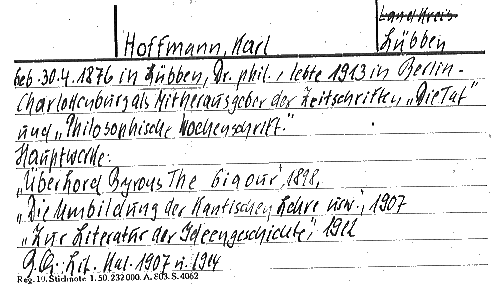 Land Kreis
Hoffmann, Karl
Lübben
geb. 30.4.1876 in Lübben, Dr. phil., lebte 1913 in Berlin-
Charlottenburg als Mitherausgeber der Zeitschriften „Die Tat"
und „Philosophische Wochenschrift."
Hauptwerke:
„Über Lord Byrons The Giaour", 1898,
„Die Umbildung der Kantischen Lehre usw.", 1907
„Zur Literatur der Ideengeschichte", 1912
Lit. Kal. 1907 u. 1914
Reg. 19. Stichnote 1. 50. 232 000. A. 803. S. 4062